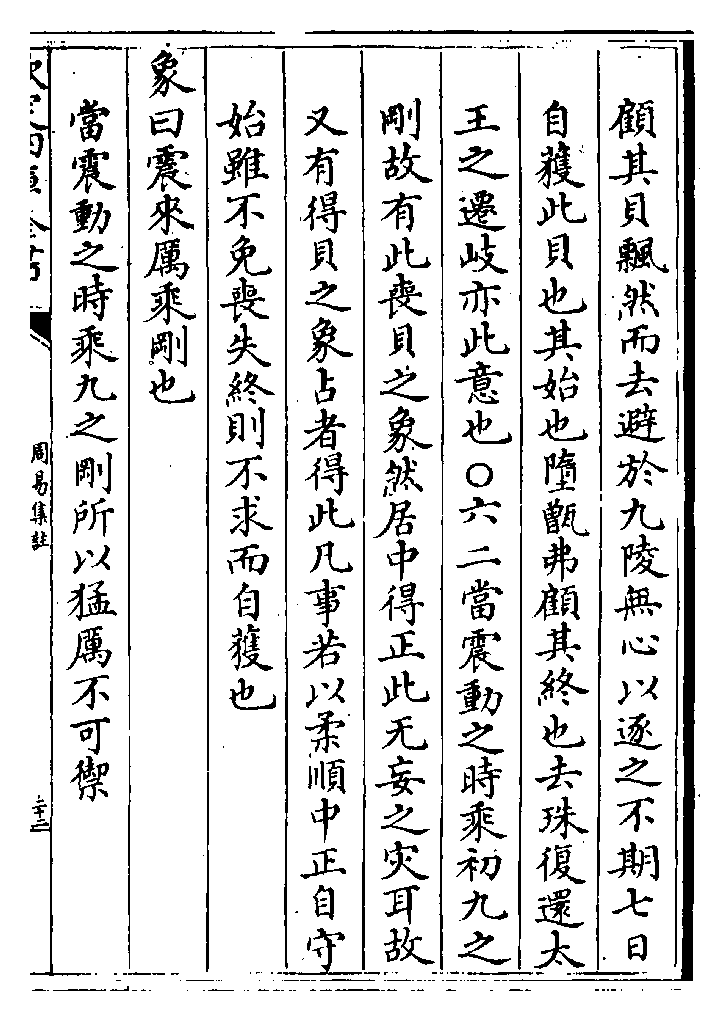 顧其貝飄然而去避於九陵無心以逐之不期七日
自獲此貝也其始也墮甑弗顧其終也去珠復還太
王之遷岐亦此意也○六二當震動之時乘初九之
剛故有此喪貝之象然居中得正此无妄之灾耳故
又有得貝之象占者得此凡事若以柔順中正自守
始雖不免喪失終則不求而自獲也
象曰震來厲乘剛也
當震動之時乘九之剛所以猛厲不可禦
欽定四庫全書
周易集註
二十二